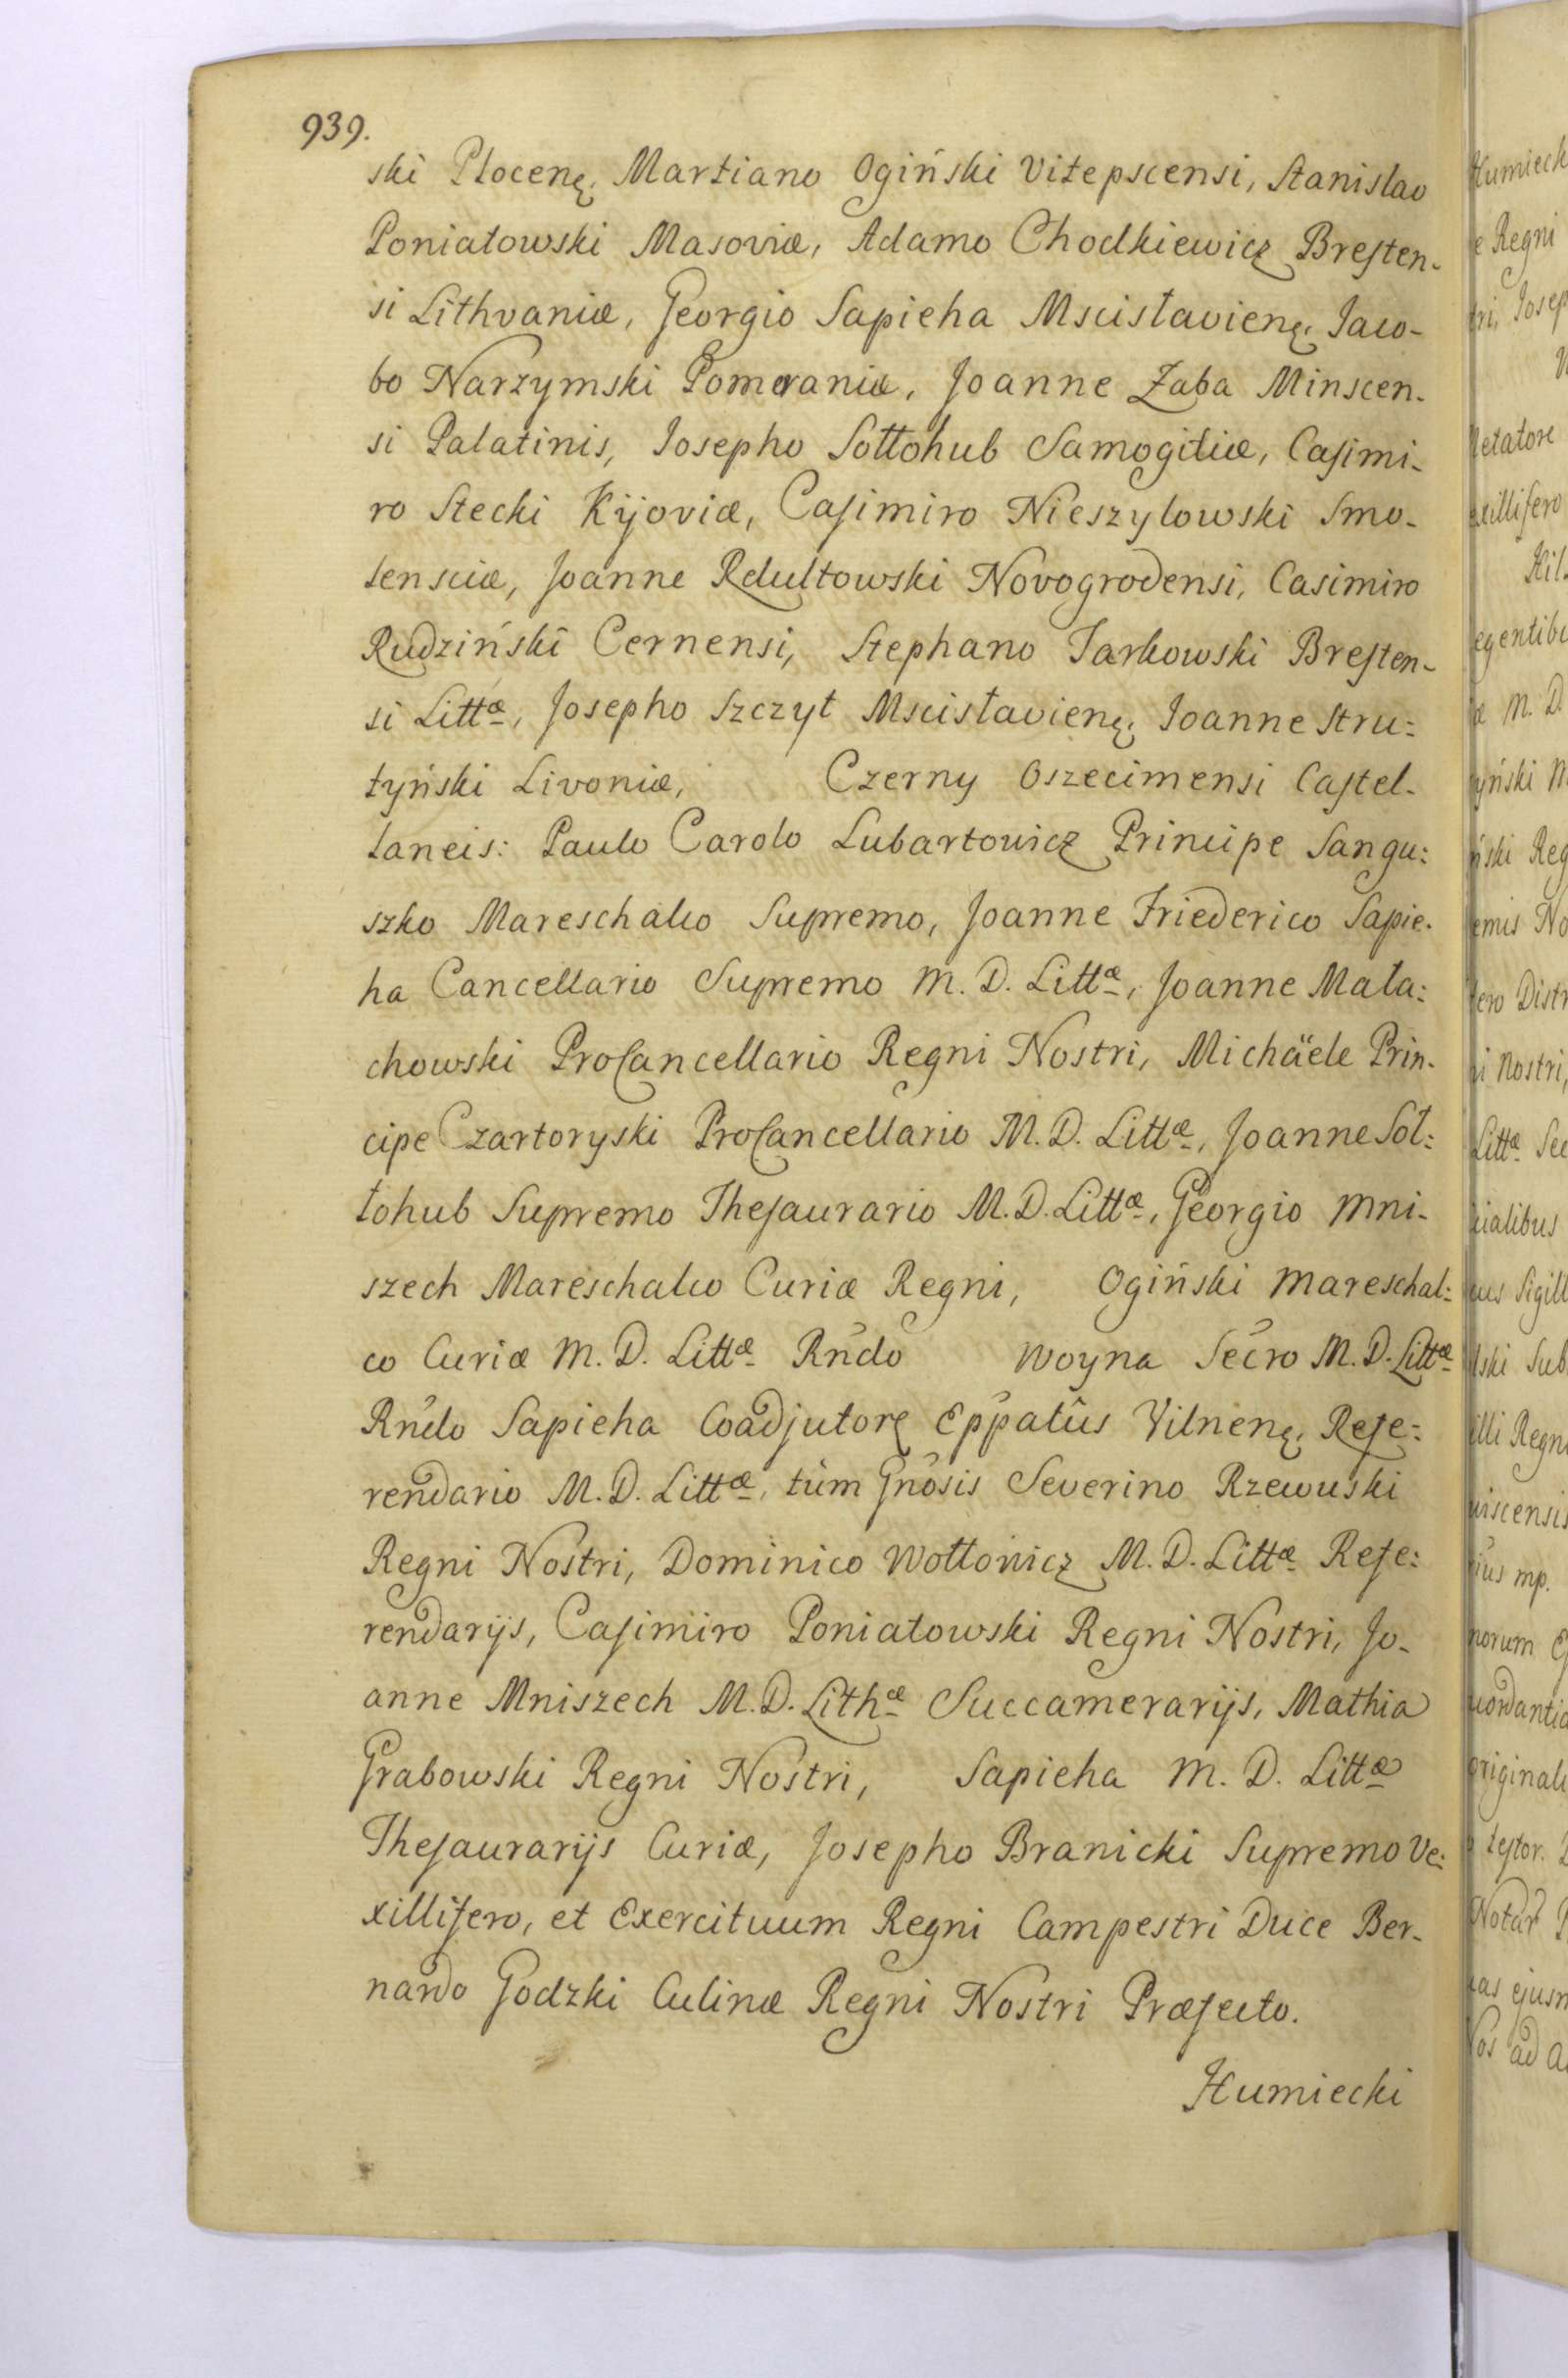 939.
ski Płocenę, Martiano Ogiński Vitepscensi, Stanislao
Poniatowski Masoviæ, Adamo Chodkiewicz Bresten-
si Lithvaniæ, Georgio Sapieha Mscisłavienę, Jaco-
bo Narzymski Pomeraniæ, Joanne Zaba Minscen-
si Palatinis, Josepho Sołłohub Samogitiæ, Casimi-
ro Stecki Kijoviæ, Casimiro Nieszylowski Smo-
lensciæ, Joanne Rdułtowski Novogrodensi, Casimiro
Rudziński Cernensi, Stephano Tarkowski Bresten-
si Littæ, Josepho Szczyt Mscisłavienę, Joanne Stru:
tyński Livoniæ, Czerny Oszecimensi Castel-
laneis: Paulo Carolo Lubartowicz Principe Sangu:
szko Mareschalco Supremo, Joanne Friederico Sapie-
ha Cancellario Supremo M. D. Littæ, Joanne Mała:
chowski ProCancellario Regni Nostri, Michäele Prin-
cipe Czartoryski ProCancellario M. D. Littæ, Joanne Soł:
łohub Supremo Thesaurario M. D. Littæ, Georgio Mni-
szech Mareschalco Curiæ Regni, Ogiński Mareschal:
co Curiæ M. D. Littæ Rndo Woyna Secro M. D. Littæ
Rndo Sapieha Coadjutorę Eppatûs Vilnenę, Refe:
rendario M. D. Littæ, tùm Gnosis Severino Rzewuski
Regni Nostri, Dominico Wołłowicz M. D. Littæ Refe:
rendarijs, Casimiro Poniatowski Regni Nostri, Jo-
anne Mniszech M. D. Lithæ Succamerarijs, Mathia
Grabowski Regni Nostri, Sapieha M. D. Littæ
Thesaurarijs Curiæ, Josepho Branicki Supremo Ve:
xillifero, et Exercituum Regni Campestri Duce Ber-
nardo Godzki Culinæ Regni Nostri Præfecto.
Humiecki